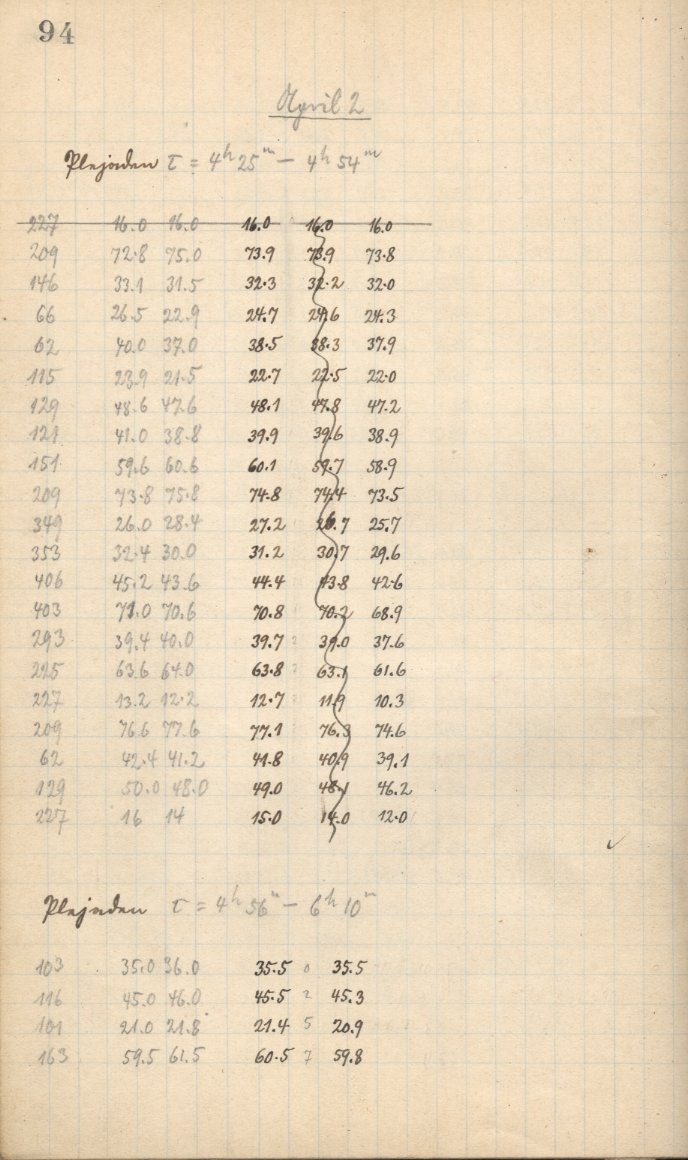 94
April 2
Plejaden τ = 4h 25m — 4h 54m
227 16.0 16.0 16.0 16.0 16.0
209 72.8 75.0 73.9 73.9 73.8
146 33.1 31.5 32.3 32.2 32.0
66 26.5 22.9 24.7 24.6 24.3
62 40.0 37.0 38.5 38.3 37.9
115 23.9 21.5 22.7 22.5 22.0
129 48.6 47.6 48.1 47.8 47.2
121 41.0 38.8 39.9 39.6 38.9
151 59.6 60.6 60.1 59.7 58.9
209 73.8 75.8 74.8 74.4 73.5
349 26.0 28.4 27.2 26.7 25.7
353 32.4 30.0 31.2 30.7 29.6
406 45.2 43.6 44.4 43.8 42.6
403 71.0 70.6 70.8 70.2 68.9
293 39.4 40.0 39.7 39.0 37.6
225 63.6 64.0 63.8 63.1 61.6
227 13.2 12.2 12.7 11.9 10.3
209 76.6 77.6 77.1 76.3 74.6
62 42.4 41.2 41.8 40.9 39.1
129 50.0 48.0 49.0 48.1 46.2
227 16 14 15.0 14.0 12.0
Plejaden τ = 4h 56m — 6h 10m
103 35.0 36.0 35.5 0 35.5
116 45.0 46.0 45.5 2 45.3
101 21.0 21.8 21.4 5 20.9
163 59.5 61.5 60.5 7 59.8